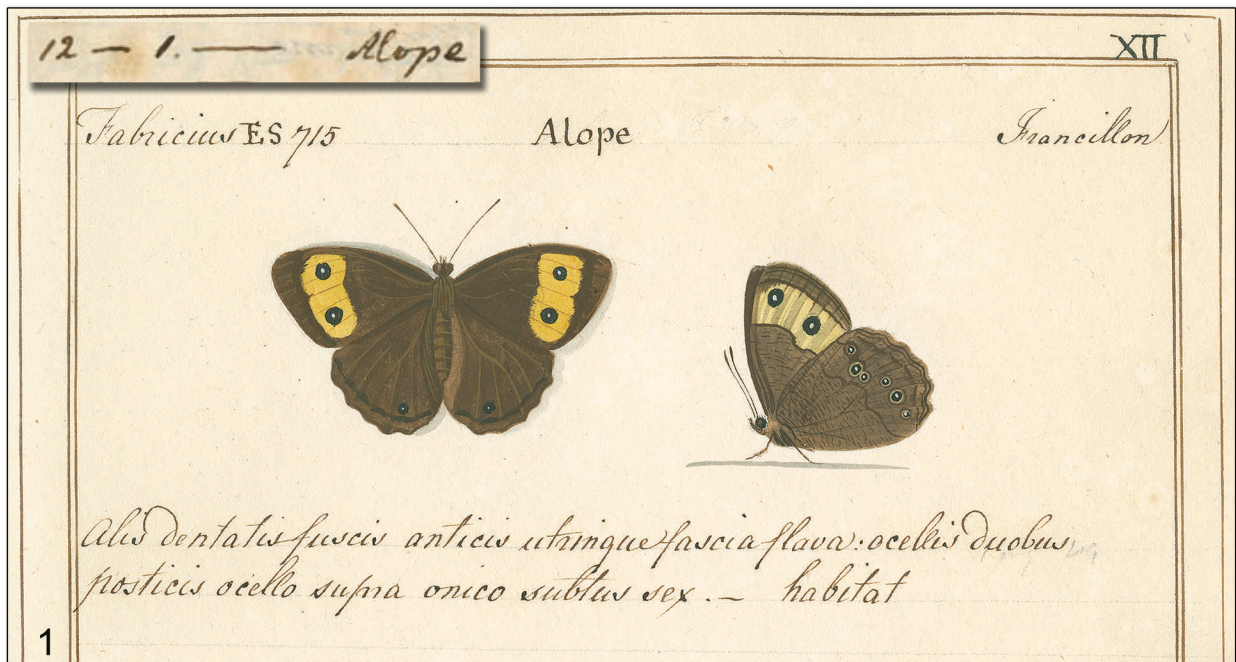 12 — 1. — Alope
XII
Fabricius ES 715 Alope Francillon
Alis dentatis fuscis anticis utrinque fascia flava: ocellis duobus
posticis ocello supra onico subtus sex. — habitat
1